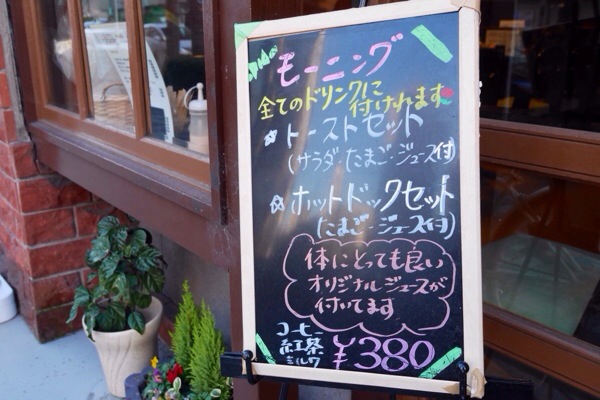 モーニング
全てのドリンクに
付けれます
☆トーストセット
(サラダ・たまご・ジュース付)
☆ホットドックセット
(たまご・ジュース付)
体にとっても良い
オリジナルジュースが
付いてます
コーヒー
紅茶
ミルク
¥380